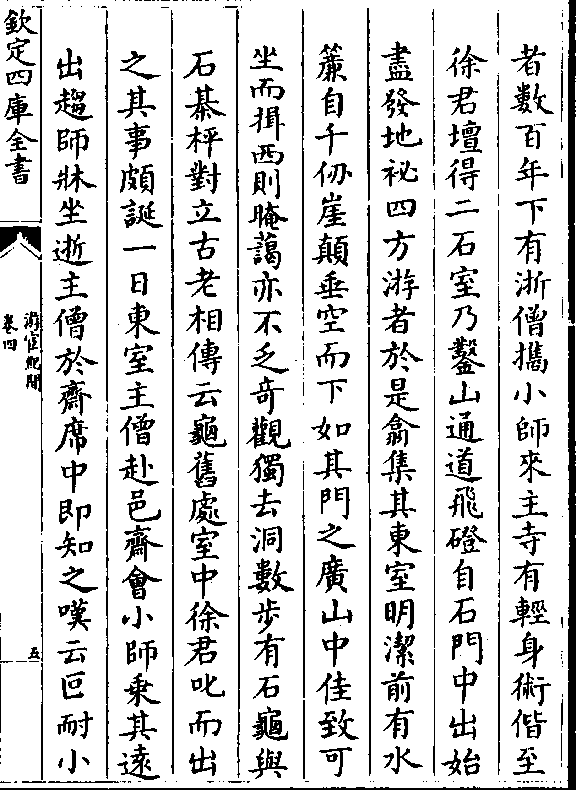 者數百年下有浙僧攜小師來主寺有輕身術偕至
徐君壇得二石室乃鑿山通道飛磴自石門中出始
盡發地祕四方游者於是翕集其東室明潔前有水
簾自千仞崖顛垂空而下如其門之廣山中佳致可
坐而揖西則晻藹亦不乏奇觀獨去洞數步有石龜與
石棊枰對立古老相傳云龜舊處室中徐君叱而出
之其事頗誕一日東室主僧赴邑齋會小師乗其逺
出趨師牀坐逝主僧於齋席中即知之嘆云叵耐小
欽定四庫全書
游宦紀聞
卷四
五